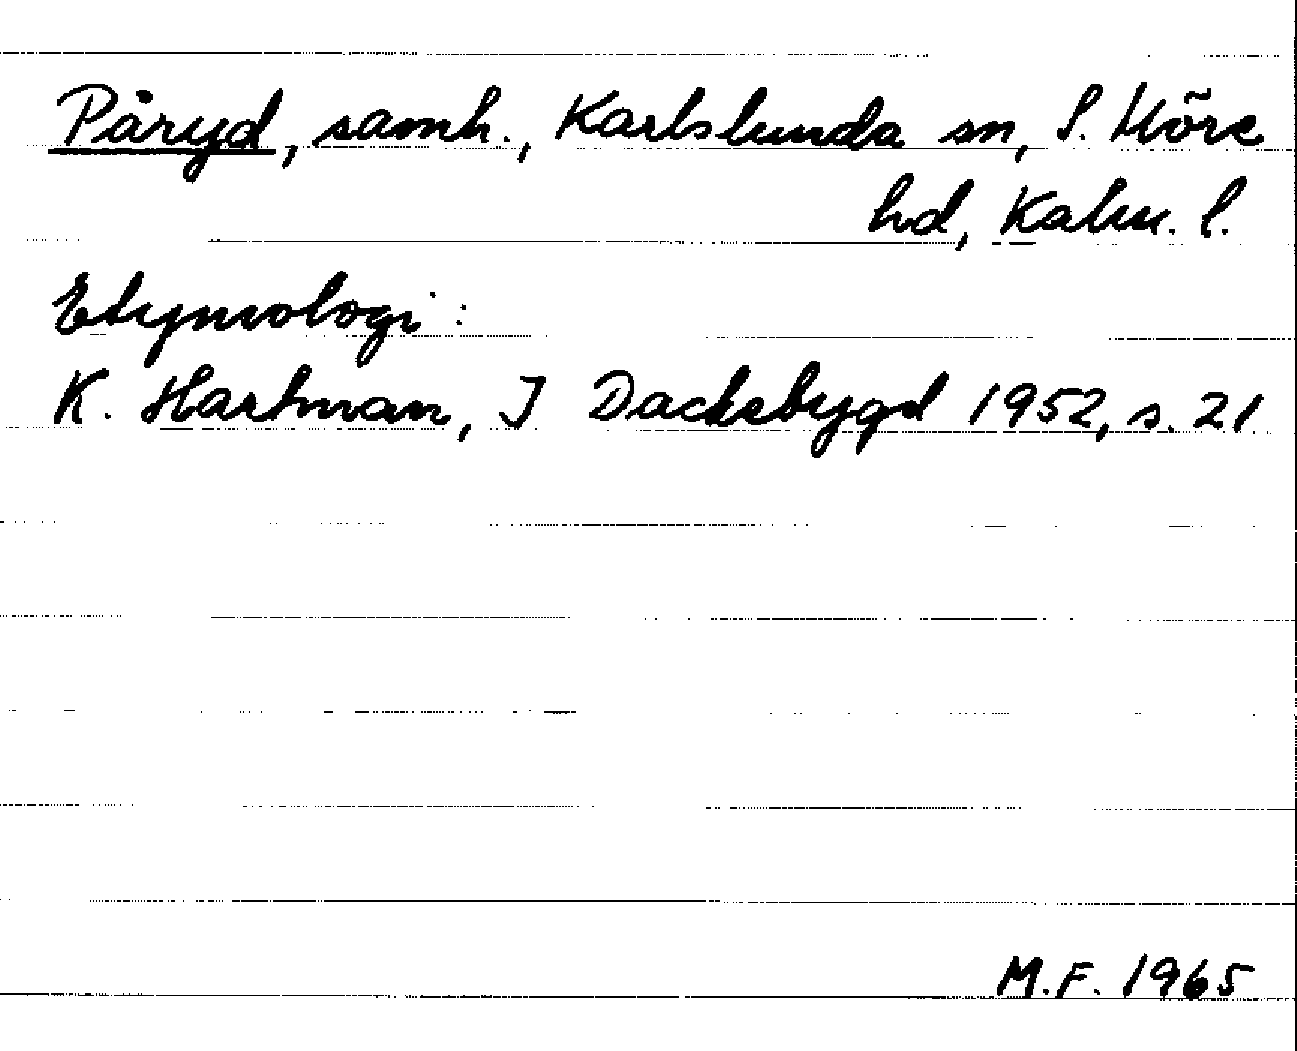 Påryd, samh., Karlslunda sn, S. Möre
hd, Kalm. l.
Etymologi:
K. Hartman, I Dackebygd 1952, s. 21
M.F. 1965